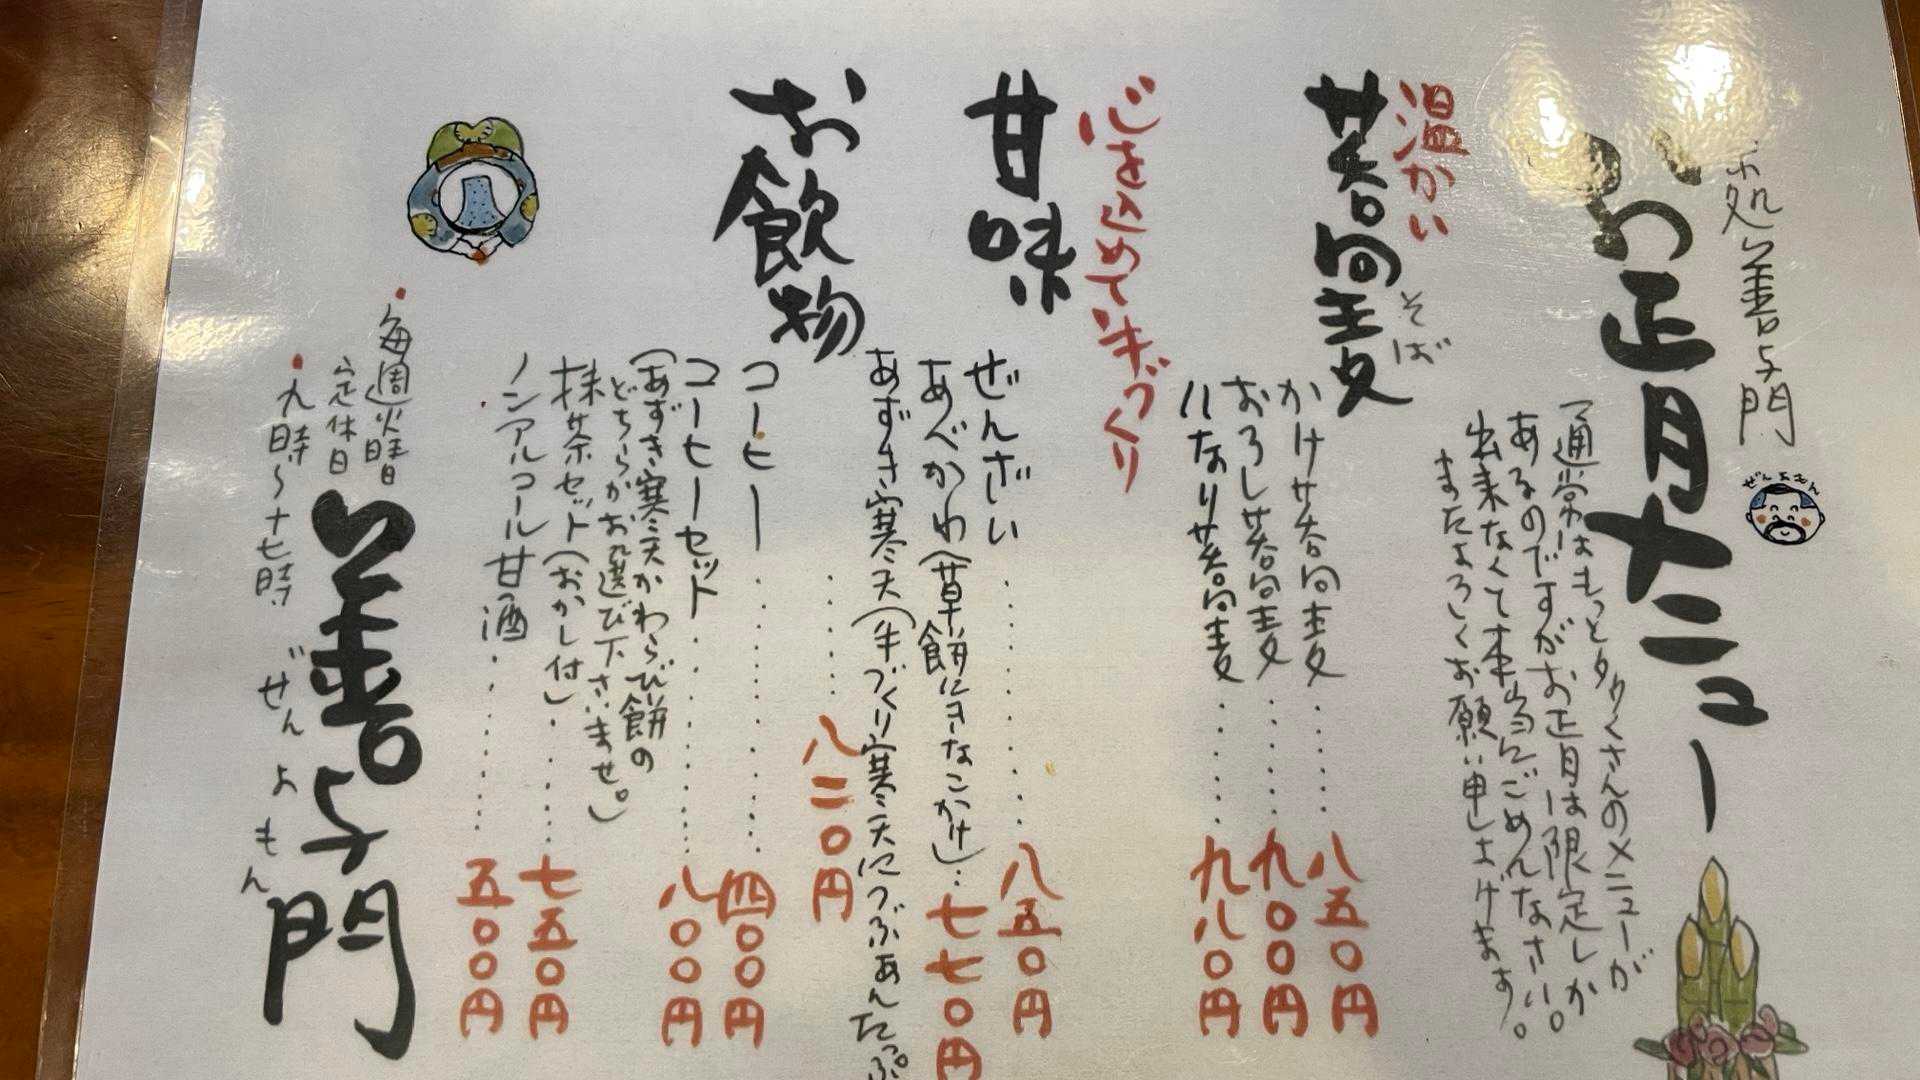 お処 善与門
ぜんよもん
お正月メニュー
通常はもっと夕くさんのメニューが
あるのですがお正月は限定しか
出来なくて本当にごめんなさい。
またよろしくお願い申しあげます。
温かい
蕎麦
そば
かけ蕎麦・・・・・八五〇円
おろし蕎麦・・・・・九〇〇円
になり蕎麦・・・・・九八〇円
心をこめて手づくり
甘味
ぜんざい・・・・・・・・・八五〇円
あべかわ(草餅にきなこかけ)・・七七〇円
あずき寒天(手づくり寒天につぶあんたっぷ
・・・・・八二〇円
お飲物
コーヒー・・・・・・・・・四〇〇円
コーヒーセット・・・・・・・八〇〇円
(あずき寒天かわらび餅の
どちらかお選び下さいませ。)
抹茶セット(おかし付)・・・・・七五〇円
ノンアルコール甘酒・・・・・・五〇〇円
・毎週火曜
定休日
・九時〜十七時
善与門
ぜんよもん